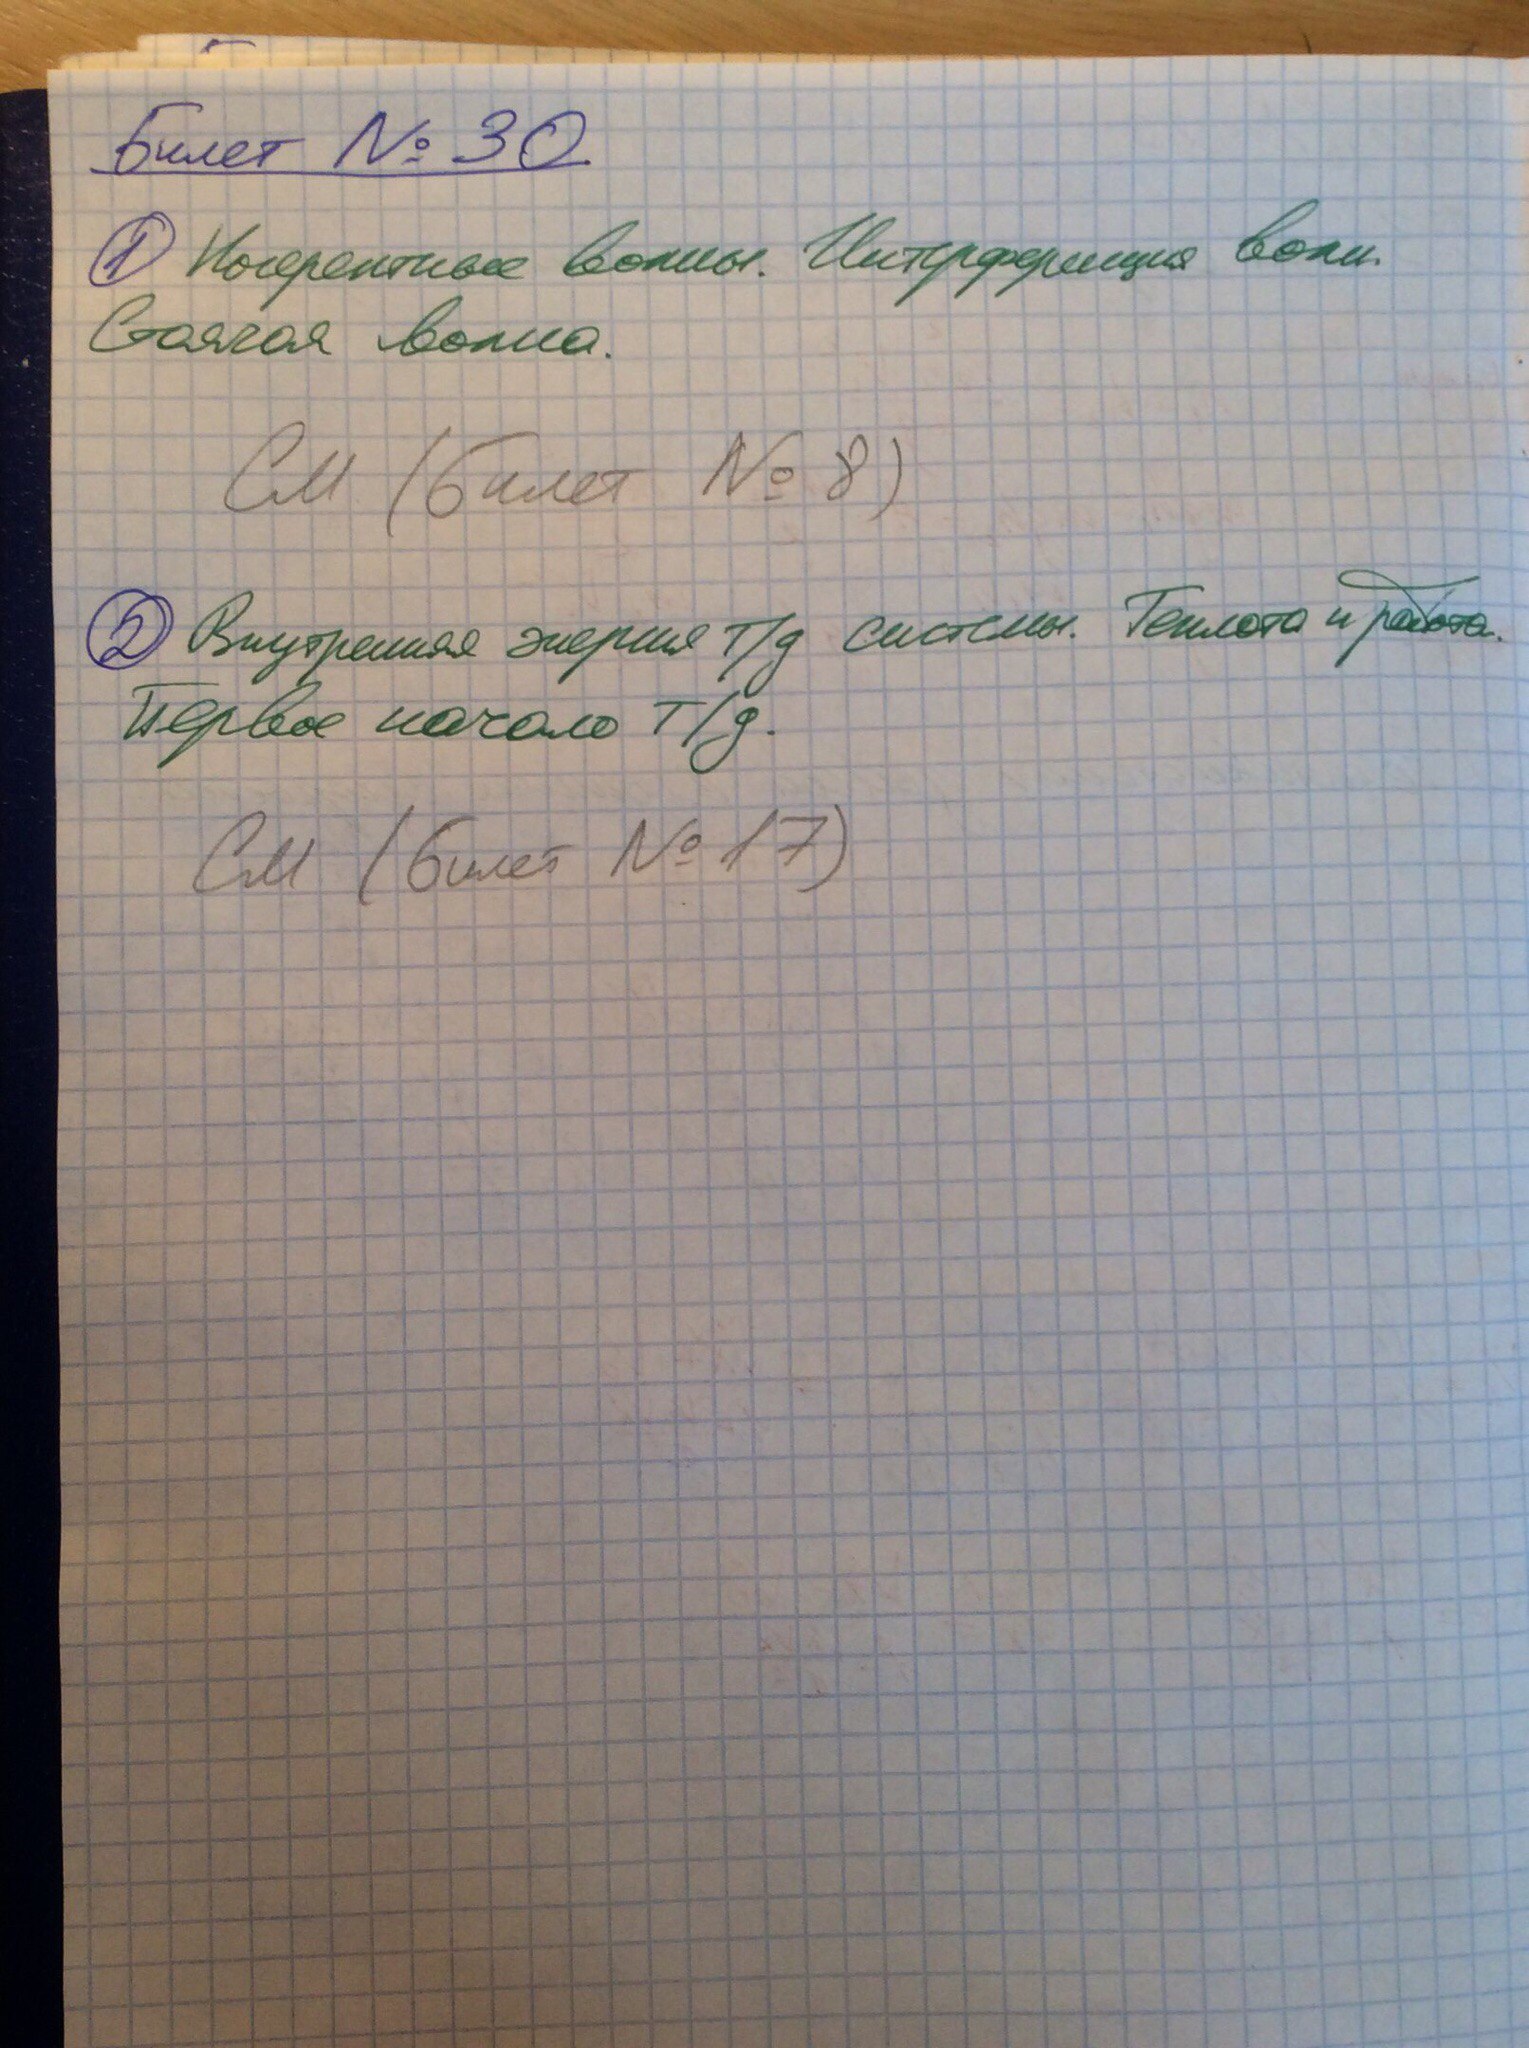 Билет № 30
1 Когерентные волны. Интерференция волн.
Стоячая волна.
СМ (билет № 8)
2 Внутренняя энергия т/д системы. Теплота и работа.
Первое начало т/д.
СМ (билет № 17)